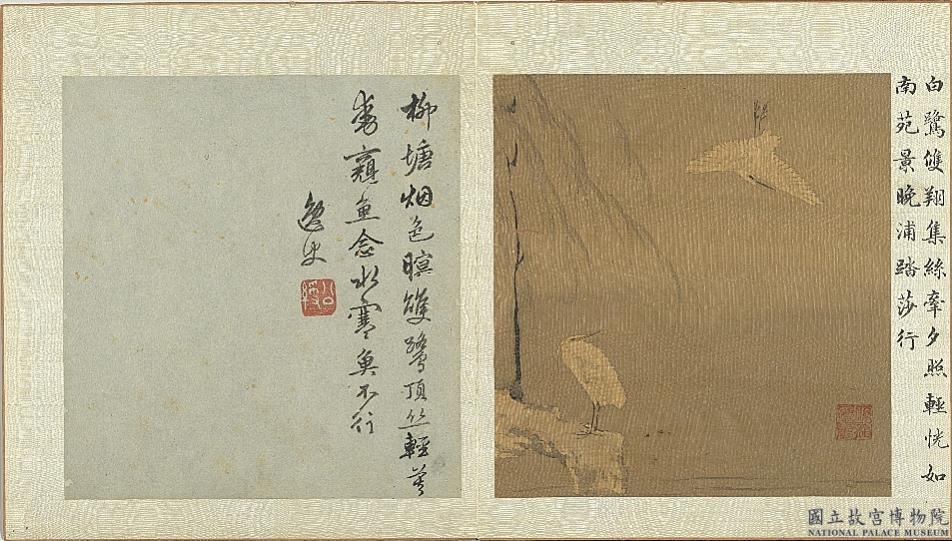 白鷺雙翔集絲牽夕照輕恍如
南苑景晚浦踏莎行
柳塘烟色暝雙鷺頂絲輕莫
窺魚念水寒魚不行
逸史
公綬
國立故宮博物院
NATIONAL PALACE MUSEUM